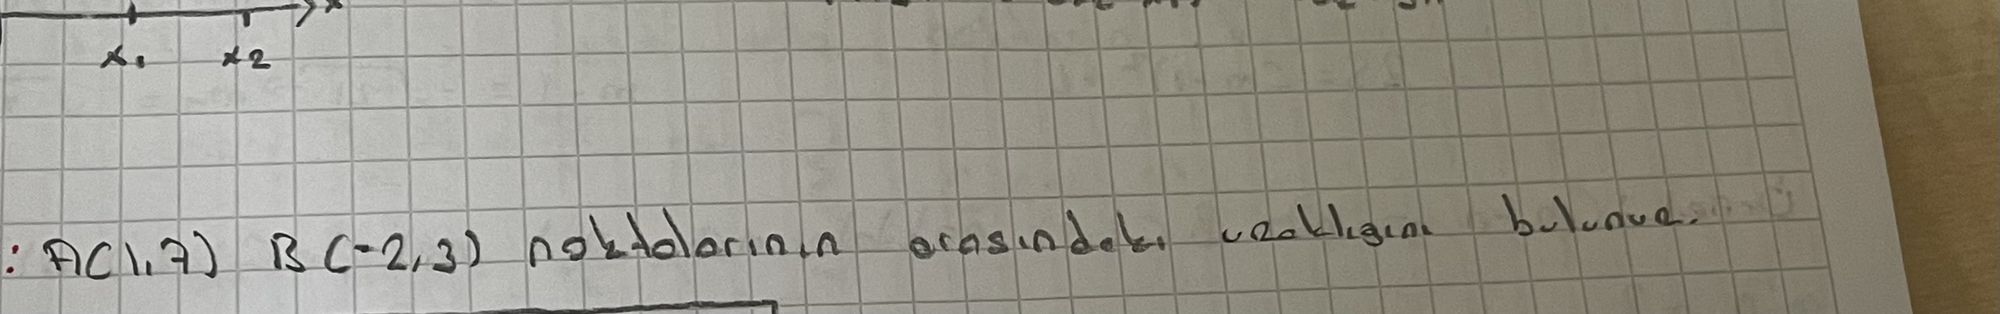 x
x₁ x2
: A(1,7) B(-2,3) noktalarının arasındaki uzaklığını bulunuz.